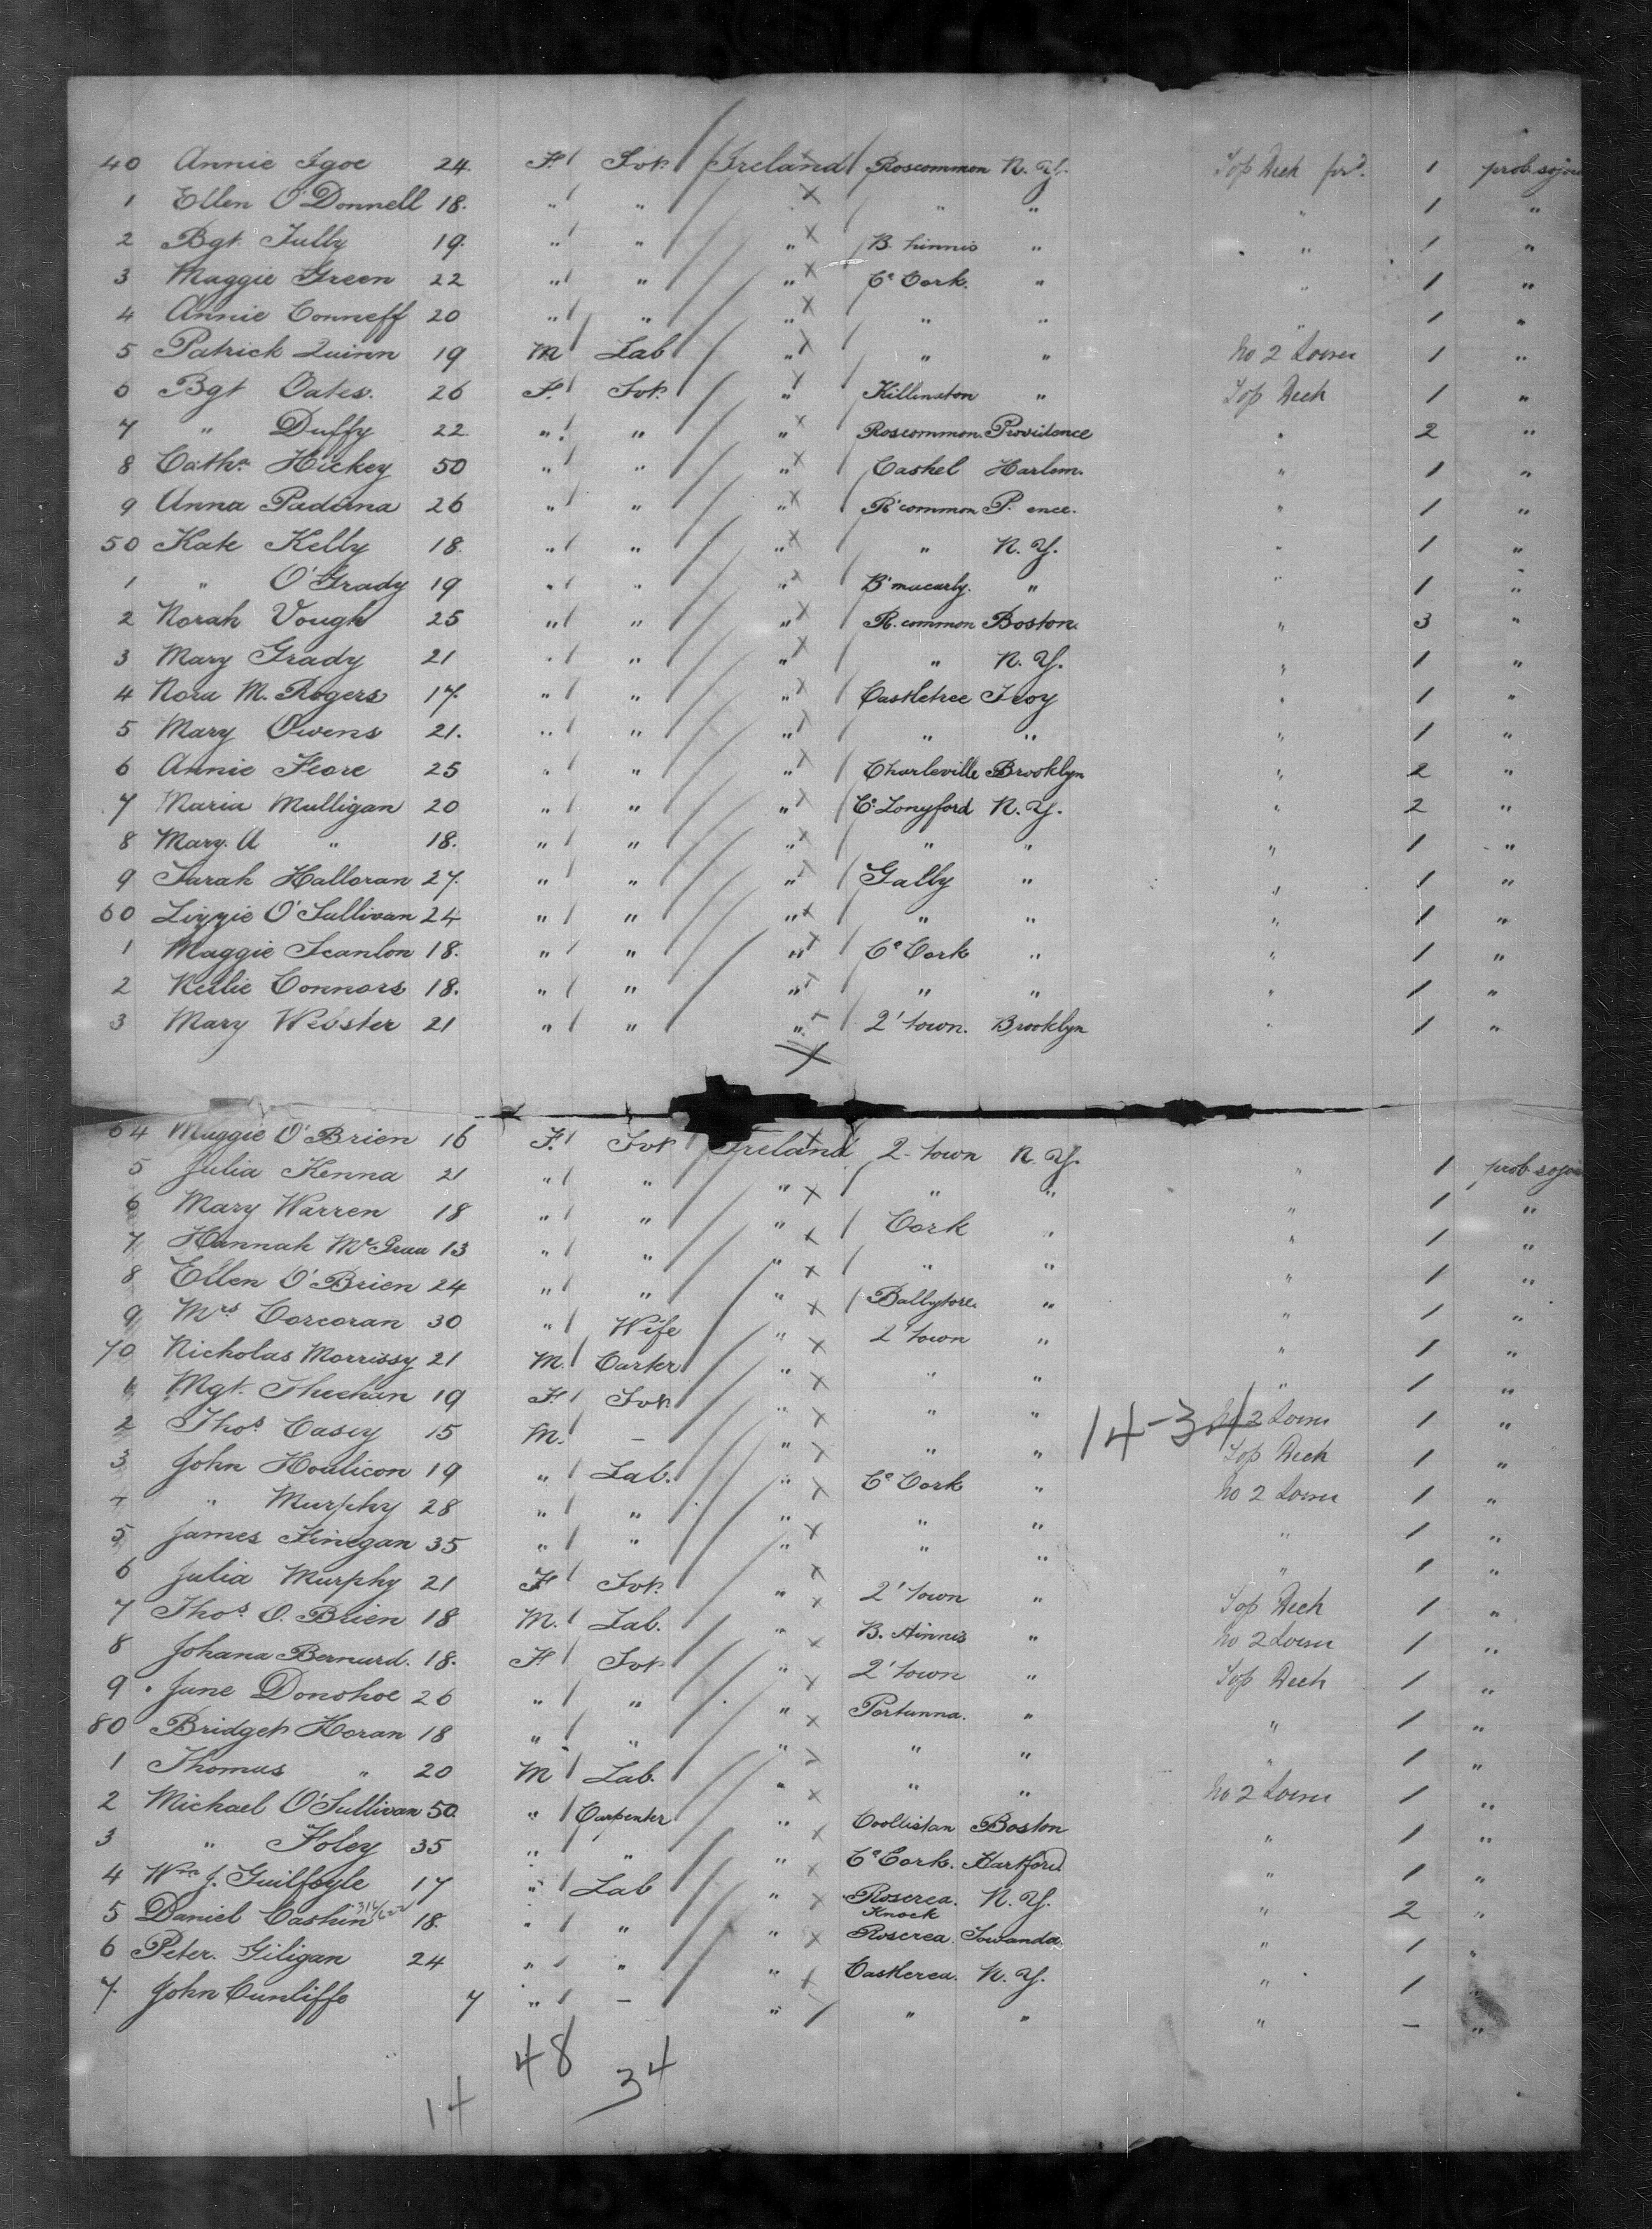 40 Annie Igoe 24. F. Svt. Ireland Roscommon N. Y. Top Deck fwd. 1 prob. sojou
1 Ellen O'Donnell 18. " " " " " " 1 "
2 Bgt. Tully 19. " " " B. hinnis " " 1 "
3 Maggie Green 22 " " " Co Cork. " " 1 "
4 Annie Conneff 20 " " " " " " 1 "
5 Patrick Quinn 19 M Lab " " " No 2 Lower 1 "
6 Bgt Oates. 26 F. Svt. " Killinston " Top Deck 1 "
7 " Duffy 22. " " " Roscommon. Providence " 2 "
8 Cath. Hickey 50 " " " Cashel Harlem. " 1 "
9 Anna Padina 26 " " " R'common P. ence. " 1 "
50 Kate Kelly 18. " " " " N. Y. " 1 "
1 " O'Grady 19 " " " B'macarly. " " 1 "
2 Norah Vough 25 " " " R. common Boston. " 3 "
3 Mary Grady 21 " " " " N. Y. " 1 "
4 Nora M. Rogers 17. " " " Castletree Troy " 1 "
5 Mary Owens 21. " " " " " " 1 "
6 Annie Flore 25 " " " Charleville Brooklyn " 2 "
7 Maria Mulligan 20 " " " Co. Longford N. Y. " 2 "
8 Mary. A " 18. " " " " " " 1 "
9 Sarah Halloran 27. " " " Gally " " 1 "
60 Lizzie O'Sullivan 24 " " " " " " 1 "
1 Maggie Scanlon 18. " " " Co Cork " " 1 "
2 Nellie Connors 18. " " " " " " 1 "
3 Mary Webster 21 " " " 2'town. Brooklyn " 1 "
64 Maggie O'Brien 16 F. Svt Ireland 2-town N. Y. " 1 prob. sojou
5 Julia Kenna 21 " " " " " " 1 "
6 Mary Warren 18 " " " Cork " " 1 "
7 Hannah Mc Graa 13 " " " " " " 1 "
8 Ellen O'Brien 24 " " " Ballytore. " " 1 "
9 Mrs Corcoran 30 " Wife " 2'town " " 1 "
70 Nicholas Morrissy 21 M. Carter " " " " 1 "
1 Mgt. Sheehan 19 F. Svt. " " " 14-34 No 2 Lower 1 "
2 Thos. Casey 15 M. — " " " Top Deck 1 "
3 John Houlicon 19 " Lab. " Co Cork " No 2 Lower 1 "
4 " Murphy 28 " " " " " " 1 "
5 James Finegan 35 " " " " " " 1 "
6 Julia Murphy 21 F Svt. " 2'town " Top Deck 1 "
7 Thos. O. Brien 18 M. Lab. " B. hinnis " No 2 Lower 1 "
8 Johana Bernard. 18. F Svt " 2'town " Top Deck 1 "
9 Jane Donohoe 26 " " " Portunna. " " 1 "
80 Bridget Horan 18 " " " " " " 1 "
1 Thomas " 20 M Lab. " " " No 2 Lower 1 "
2 Michael O'Sullivan 50. " Carpenter " Coollistan Boston " 1 "
3 " Foley 35 " " " Co Cork. Hartford " 1 "
4 Wm J. Guilfoyle 17 " Lab " Roscrea. N. Y. " 2 "
5 Daniel Cashin 18. " " " Knock Roscrea. Towanda. " 1 "
6 Peter. Giligan 24 " " " Castlerea. N. Y. " 1 "
7. John Cunliffe 7 " — " " " " — "
48
34
14